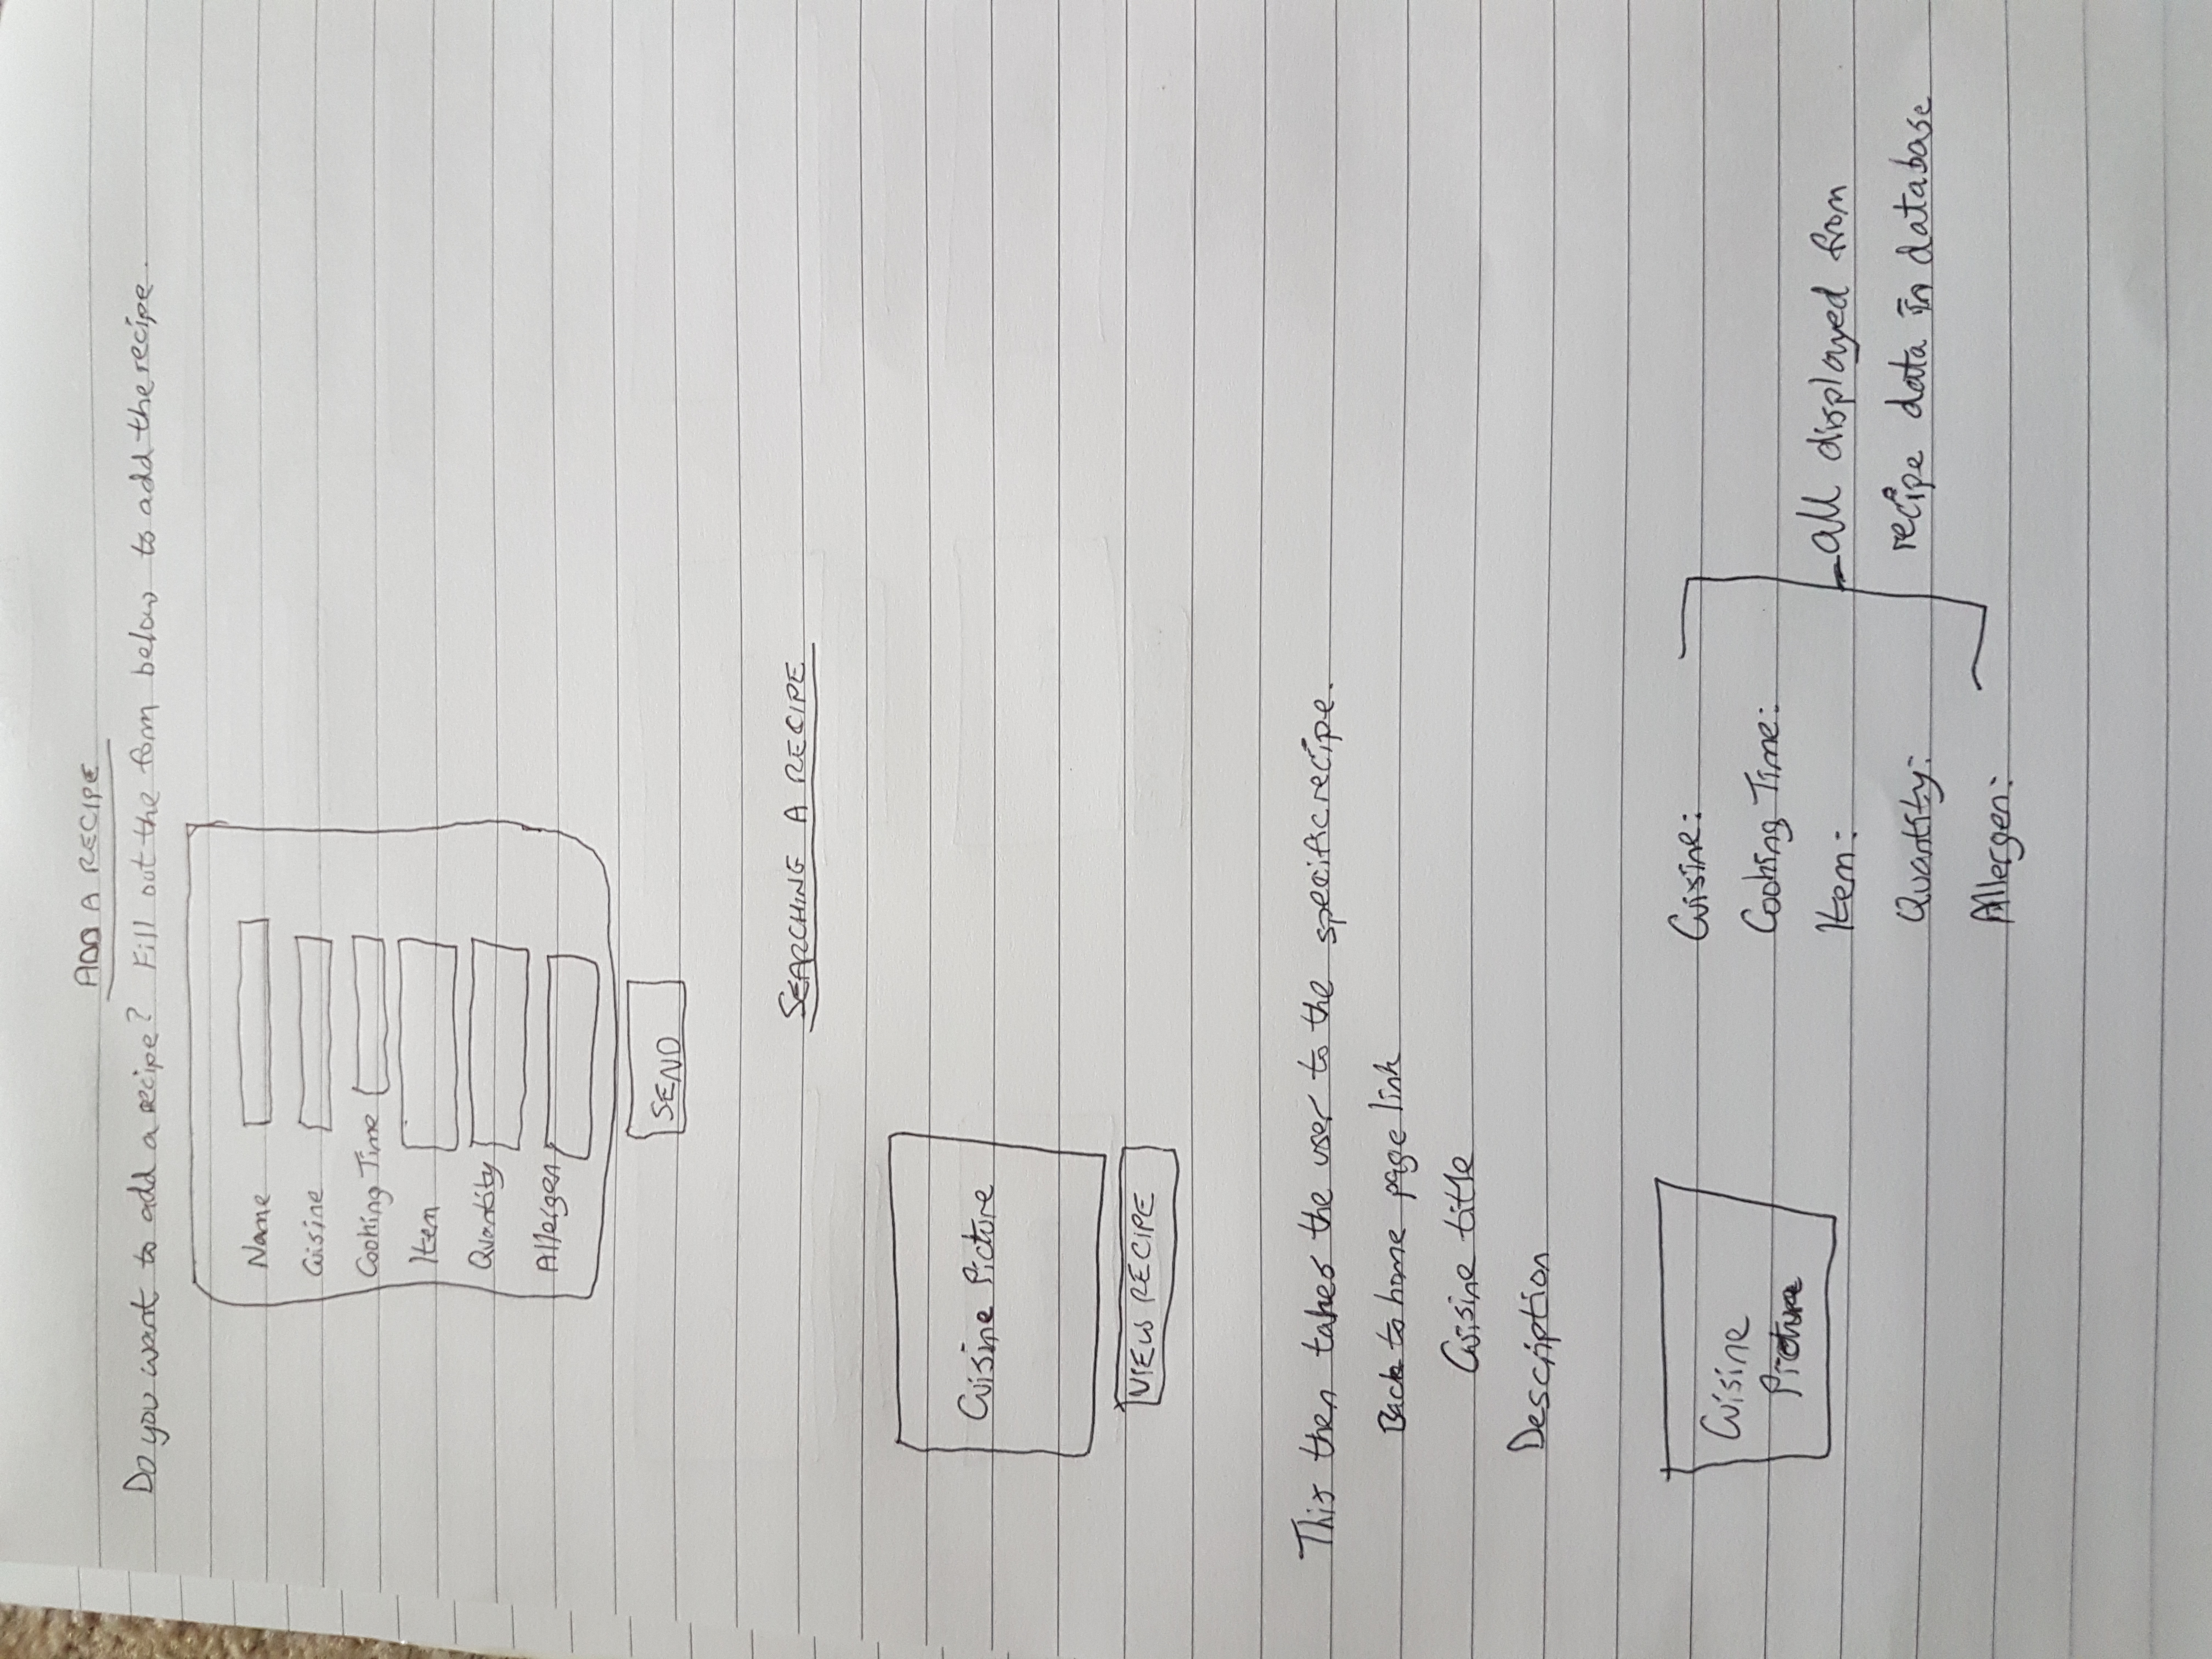 ADD A RECIPE
Do you want to add a recipe? Fill out the form below to add the recipe.
Name
Cuisine
Cooking Time
Item
Quantity
Allergen
SEND
SEARCHING A RECIPE
Cuisine Picture
VIEW RECIPE
This then takes the user to the specific recipe.
Back to home page link
Cuisine title
Description
Cuisine
Picture
Cuisine:
Cooking Time:
Item:
Quantity:
Allergen:
all displayed from
recipe data in database